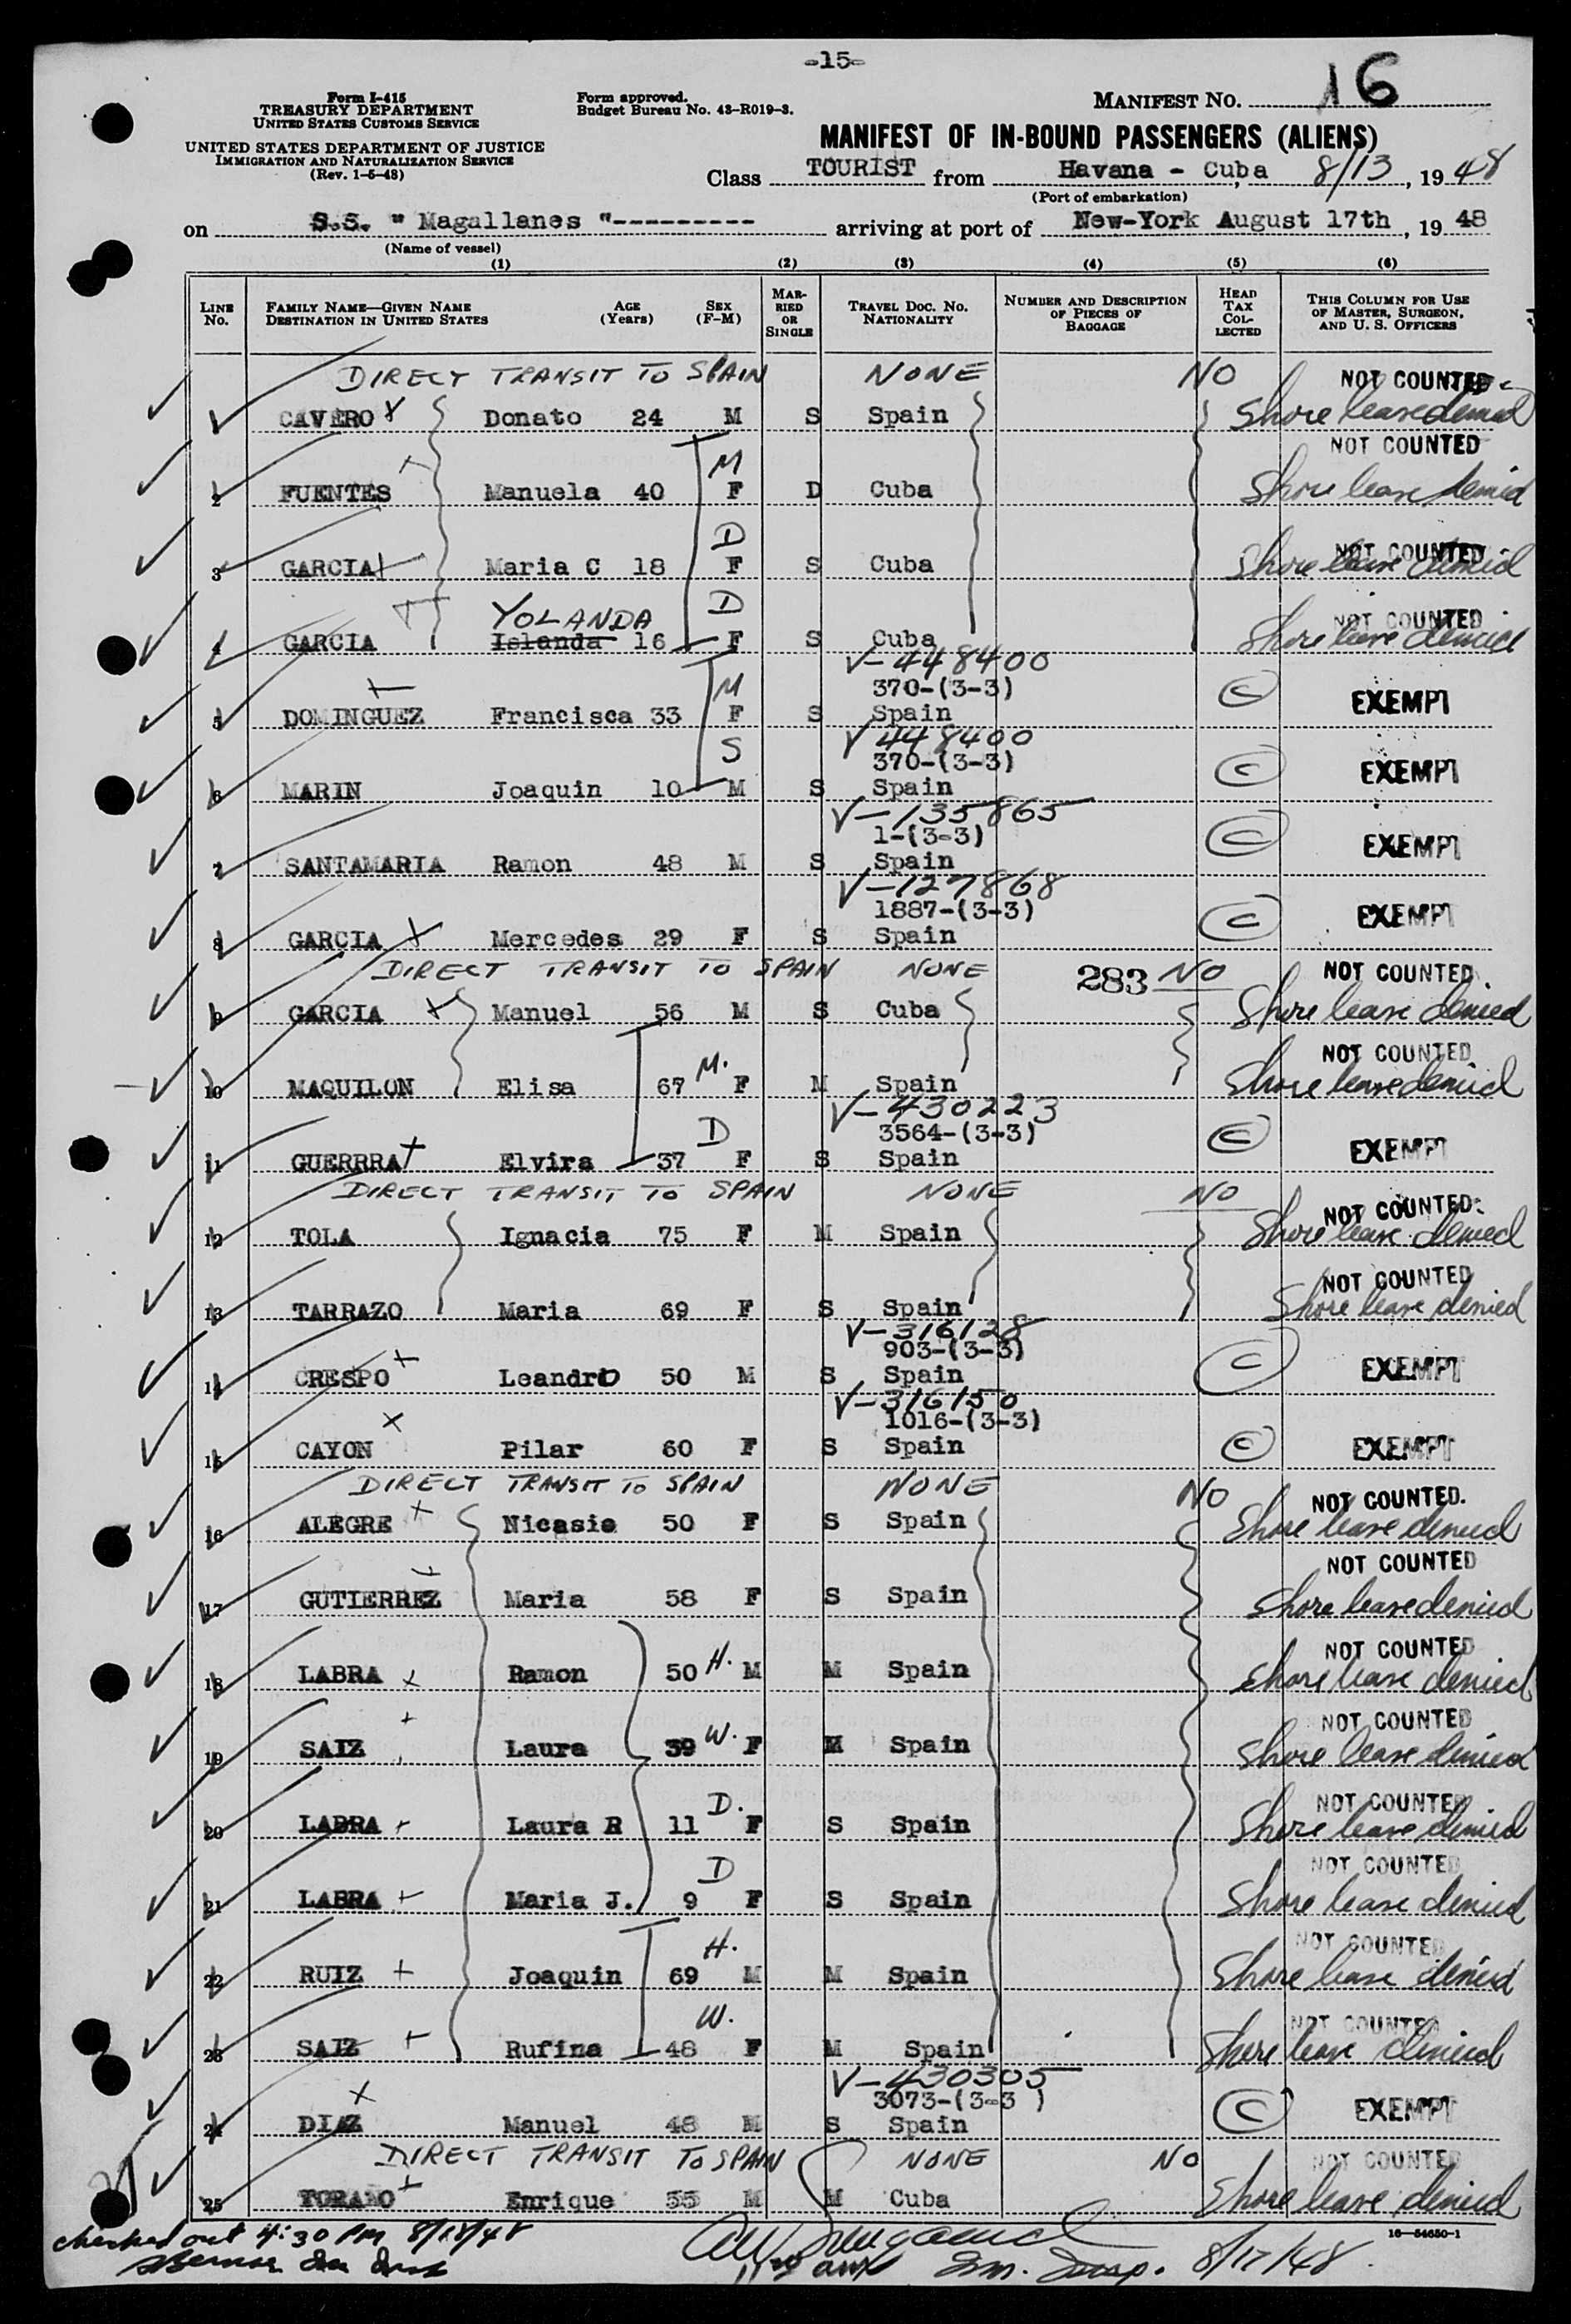 -15-
Form I-415
TREASURY DEPARTMENT
UNITED STATES CUSTOMS SERVICE
UNITED STATES DEPARTMENT OF JUSTICE
IMMIGRATION AND NATURALIZATION SERVICE
(Rev. 1-5-48)
Form approved.
Budget Bureau No. 43-R019-3.
MANIFEST NO. 16
MANIFEST OF IN-BOUND PASSENGERS (ALIENS)
Class TOURIST from Havana - Cuba, 8/13, 1948
(Port of embarkation)
on S.S. " Magallanes "--------- arriving at port of New-York August 17th, 1948
(Name of vessel)
(1) (2) (3) (4) (5) (6)
LINE NO. FAMILY NAME—GIVEN NAME DESTINATION IN UNITED STATES AGE (Years) SEX (F-M) MARRIED OR SINGLE TRAVEL DOC. NO. NATIONALITY NUMBER AND DESCRIPTION OF PIECES OF BAGGAGE HEAD TAX COLLECTED THIS COLUMN FOR USE OF MASTER, SURGEON, AND U. S. OFFICERS
DIRECT TRANSIT TO SPAIN NONE NO NOT COUNTED
1 CAVERO Donato 24 M S Spain Shore leave denied
M NOT COUNTED
2 FUENTES Manuela 40 F D Cuba Shore leave denied
D NOT COUNTED
3 GARCIA Maria C 18 F S Cuba Shore leave denied
YOLANDA D NOT COUNTED
4 GARCIA Islanda 16 F S Cuba Shore leave denied
V-448400
M 370-(3-3) C EXEMPT
5 DOMINGUEZ Francisca 33 F S Spain
V 448400
S 370-(3-3) C EXEMPT
6 MARIN Joaquin 10 M S Spain
V-135865
1-(3-3) C EXEMPT
7 SANTAMARIA Ramon 48 M S Spain
V-127868
1887-(3-3) C EXEMPT
8 GARCIA Mercedes 29 F S Spain
DIRECT TRANSIT TO SPAIN NONE 283 NO NOT COUNTED
9 GARCIA Manuel 56 M S Cuba Shore leave denied
M. NOT COUNTED
10 MAQUILON Elisa 67 F M Spain Shore leave denied
V-430223
D 3564-(3-3) C EXEMPT
11 GUERRRA Elvira 37 F S Spain
DIRECT TRANSIT TO SPAIN NONE NO NOT COUNTED
12 TOLA Ignacia 75 F M Spain Shore leave denied
NOT COUNTED
13 TARRAZO Maria 69 F S Spain Shore leave denied
V-316128
903-(3-3) C EXEMPT
14 CRESPO Leandro 50 M S Spain
V-316150
1016-(3-3)
15 CAYON Pilar 60 F S Spain C EXEMPT
DIRECT TRANSIT TO SPAIN NONE NO NOT COUNTED.
16 ALEGRE Nicasio 50 F S Spain Shore leave denied
NOT COUNTED
17 GUTIERREZ Maria 58 F S Spain Shore leave denied
NOT COUNTED
18 LABRA Ramon 50 H. M M Spain Shore leave denied
NOT COUNTED
19 SAIZ Laura 39 W. F M Spain Shore leave denied
D. NOT COUNTED
20 LABRA Laura R 11 F S Spain Shore leave denied
D NOT COUNTED
21 LABRA Maria J. 9 F S Spain Shore leave denied
H. NOT COUNTED
22 RUIZ Joaquin 69 M M Spain Shore leave denied
W. NOT COUNTED
23 SAIZ Rufina 48 F M Spain Shore leave denied
V-430305
3073-(3-3 ) C EXEMPT
24 DIAZ Manuel 48 M S Spain
DIRECT TRANSIT TO SPAIN NONE NO NOT COUNTED
25 TORANO Enrique 55 M M Cuba Shore leave denied
16—54650-1
checked out 4:30 PM 8/18/48
8/17/48